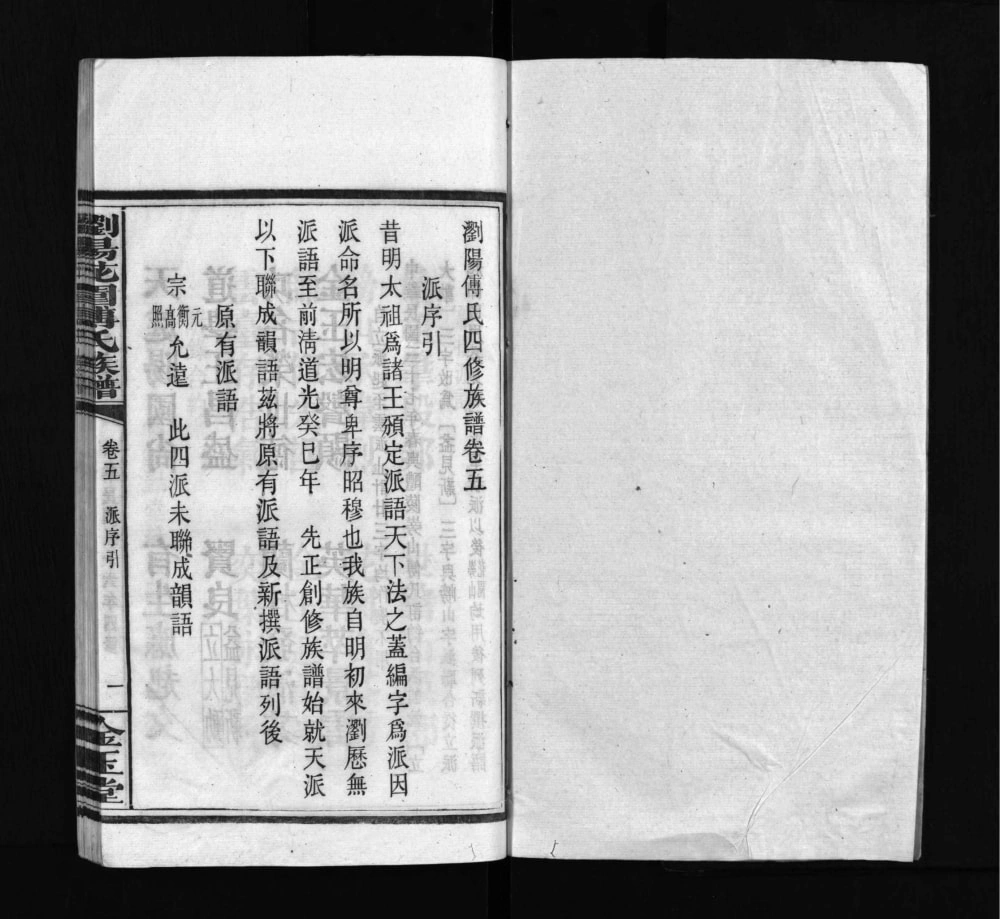 瀏陽傅氏四修族譜卷五
派序引
昔明太祖爲諸王頒定派語天下法之蓋編字爲派因
派命名所以明尊卑序昭穆也我族自明初來瀏歷無
派語至前淸道光癸巳年　先正創修族譜始就天派
以下聯成韻語茲將原有派語及新撰派語列後
原有派語
宗
元
衡
髙
照
允遠　此四派未聯成韻語
瀏陽花園傅氏族譜
卷五
派序引
一
金玉堂